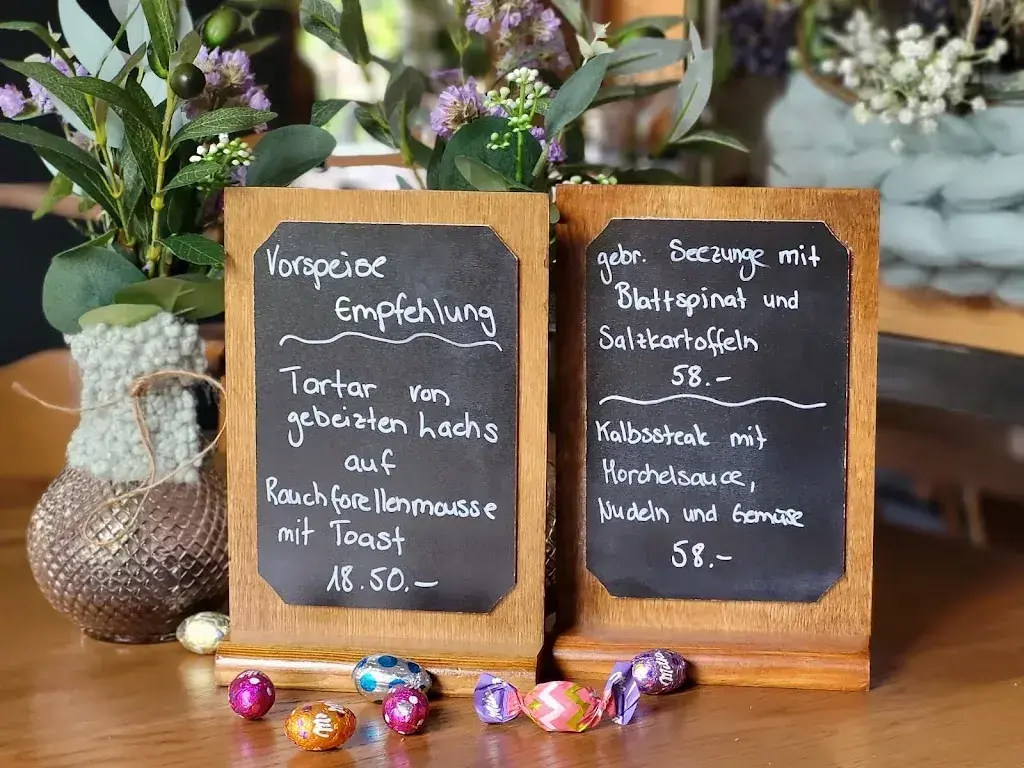 Vorspeise
Empfehlung
Tartar von
gebeizten Lachs
auf
Rauchforellenmousse
mit Toast
18.50.-
gebr. Seezunge mit
Blattspinat und
Salzkartoffeln
58.-
Kalbssteak mit
Morchelsauce,
Nudeln und Gemüse
58.-
Milka